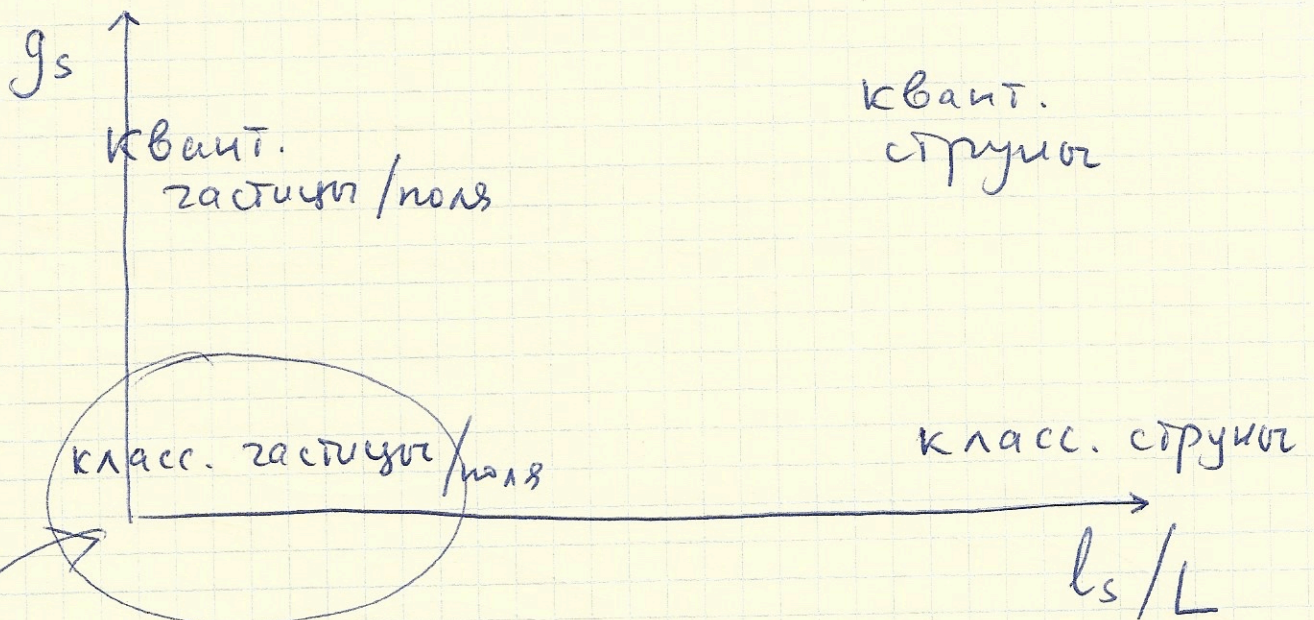 gs
квант.
частицы/поля
квант.
струны
класс. частицы/поля
класс. струны
ls/L